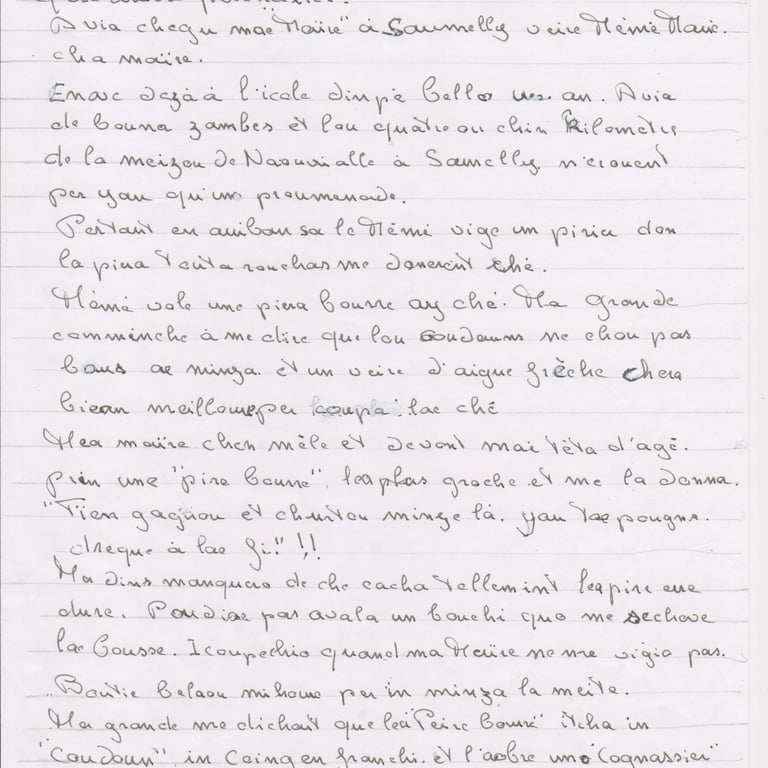 Avia chequ mae Maïre" à Saumelly veire Mémé Marie.
cha maïre.
Enave dezà à l'icole dinpè bello un an. Avia
de bouna zambes et lou quatre ou chin Kilometres
de la meizou de Naouvialle à Samelly n'erouent
per yau qu'uno proumenade.
Pertant en aniban sa le Mémé vige un pirier don
la piera touta rouchas me donerent ché.
Mémé vole une piera bourre ay ché. Ma grande
comminche à me dire que lou coudouns ne chou pas
bous ae minza. et un veire d'aigue frèche chera
bieen meillour per coupa lae ché
Mea maïre chen mèle et devont mai tèta d'agé.
prin une "pire bourre", lea plus groche et me la donna.
"Tien gagnou et chustou minze là. yau tae pougne.
cheque à lae fi." !!
Ma dins manquero de che cacha tellemint lea pire ere
dure. Poudiae pas avala un bouchi quo me sechave
lae bousse. I coupechio quand ma Maïre ne me vigio pas.
Boutie belaou mihoure per in minza la meita.
Ma grande me dichait que lea "Peire bourre" itcha in
"Coudoun", in Coing en franchi. et l'aobre uno "Cognassier"